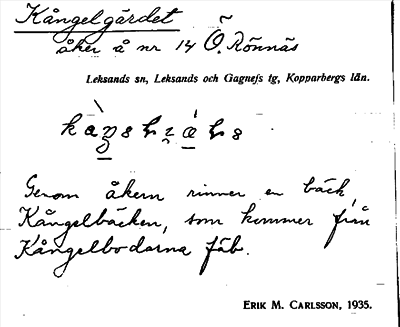 Kångelgärdet
åker å nr 14 Ö. Rönnäs
Leksands sn, Leksands och Gagnefs tg, Kopparbergs län.
Genom åkern rinner en bäck,
Kångelbäcken, som kommer från
Kångelbodarna fäb.
ERIK M. CARLSSON, 1935.